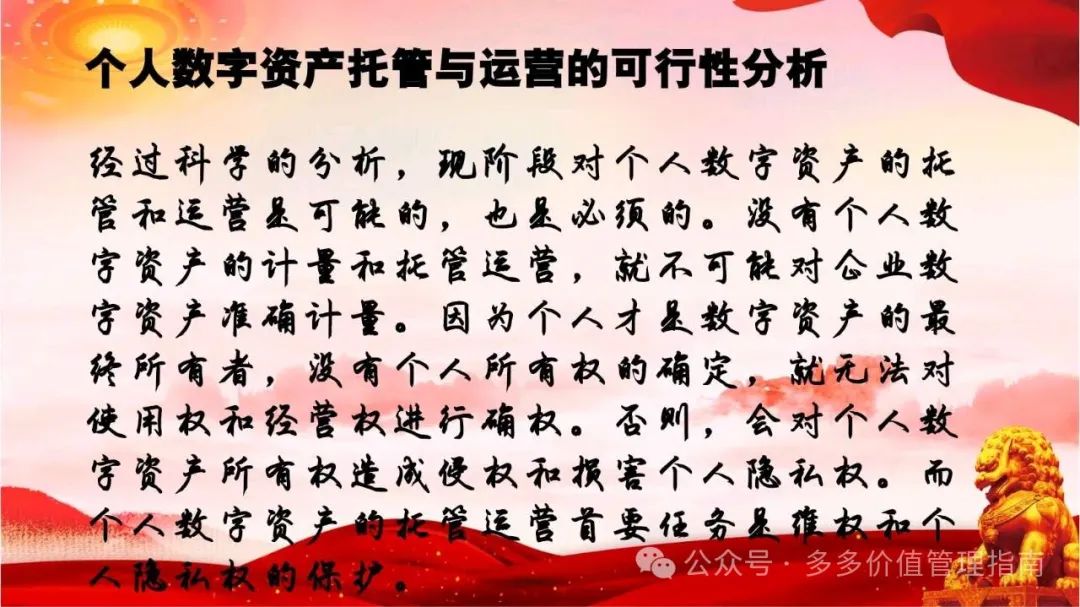 个人数字资产托管与运营的可行性分析
经过科学的分析，现阶段对个人数字资产的托
管和运营是可能的，也是必须的。没有个人数
字资产的计量和托管运营，就不可能对企业数
字资产准确计量。因为个人才是数字资产的最
终所有者，没有个人所有权的确定，就无法对
使用权和经营权进行确权。否则，会对个人数
字资产所有权造成侵权和损害个人隐私权。而
个人数字资产的托管运营首要任务是维权和个
人隐私权的保护。
公众号·多多价值管理指南